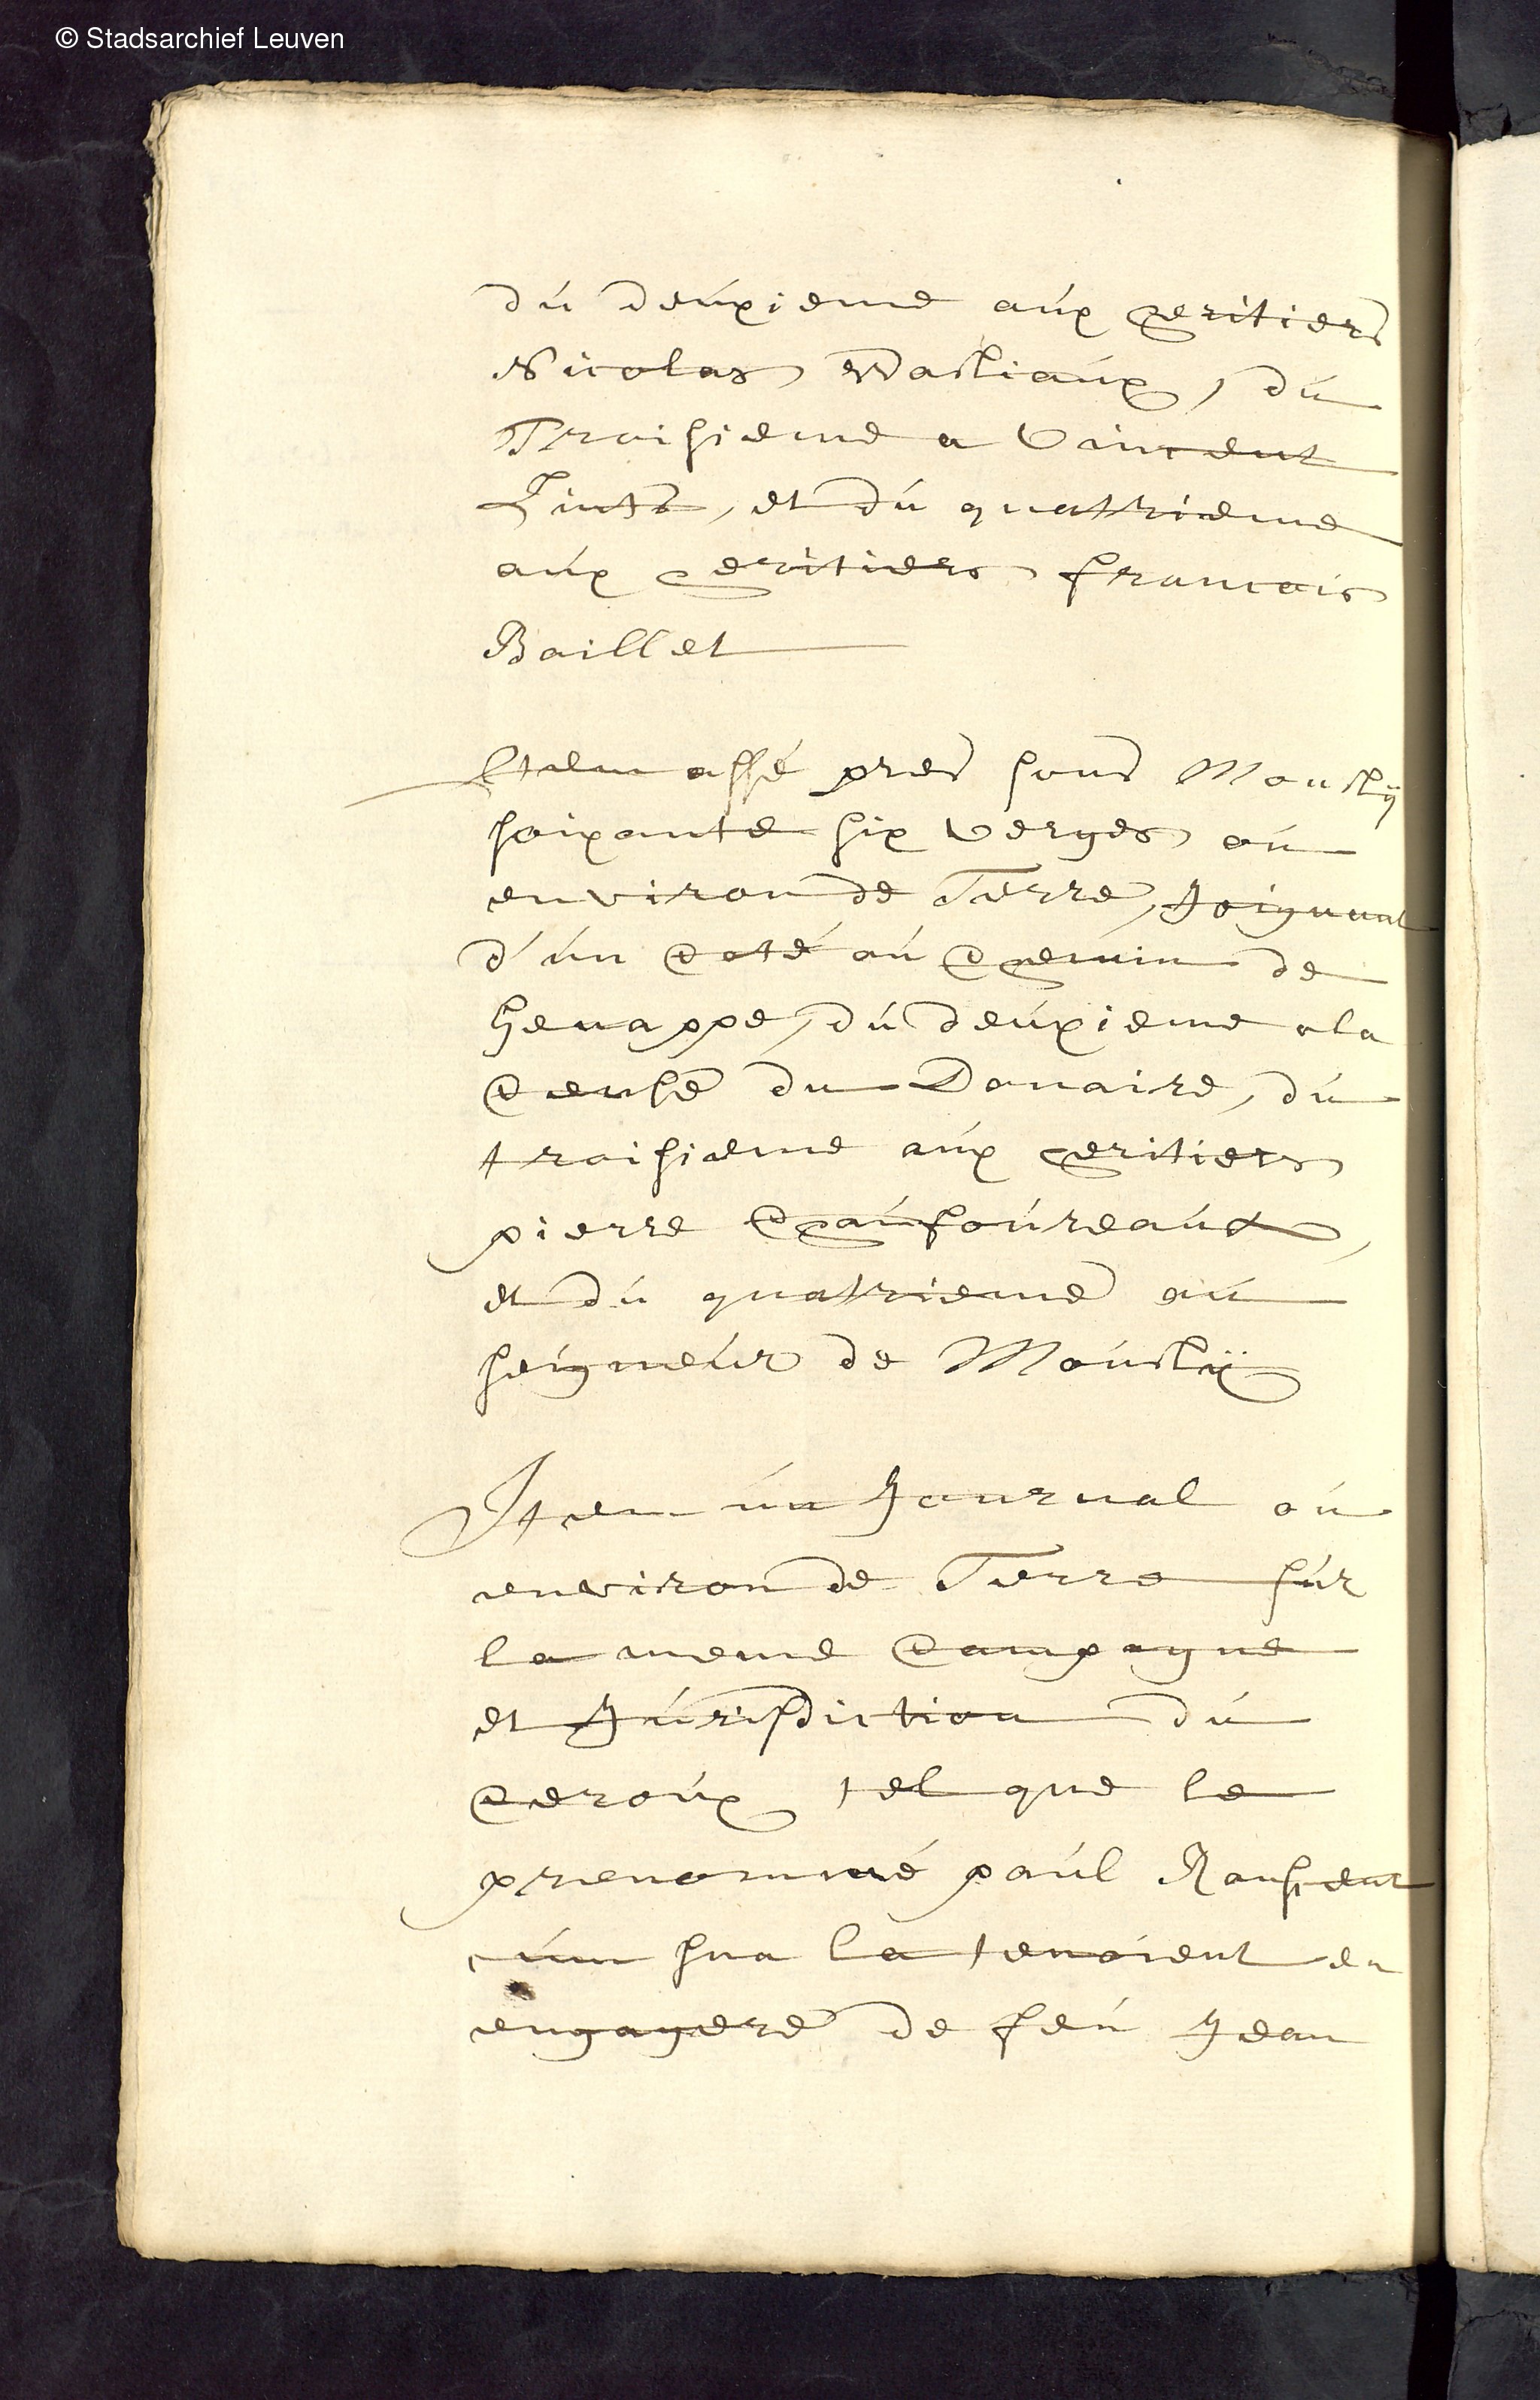 © Stadsarchief Leuven
du deuxieme aux heritiers
Nicolas Wastiaux, du
Troisieme a Vincent
Lints, et du quatrieme
aux heritiers francois
Baillet
Item assé pres sous Moustÿ
soixante six verges ou
environ de Terre, Joignant
d'un Coté au Chemin de
genappe, du deuxieme a la
Cense du Douaire, du
troisieme aux heritiers
pierre Chaufoureaux,
et du quatrieme au
seigneur de Moustÿ
Item un Journal ou
environ de Terre sur
la meme Campagne
et Jurisdiction du
Ceroux tel que le
prenommé paul
cum sua la tenoient en
engagere de feu Jean